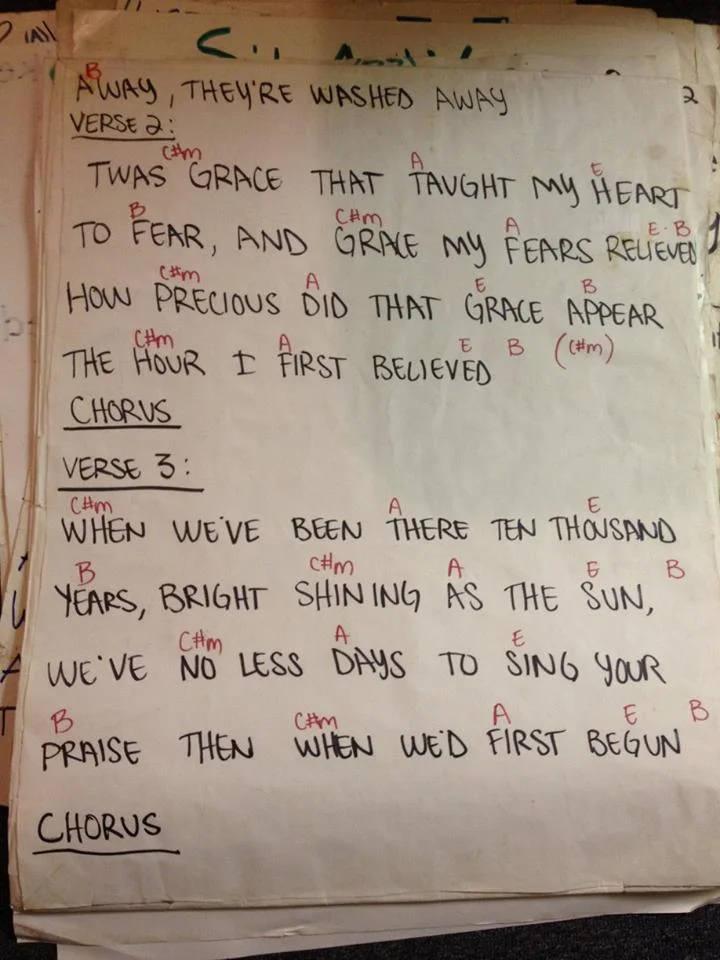 B
AWAY, THEY'RE WASHED AWAY
2
VERSE 2:
C#m A E
TWAS GRACE THAT TAUGHT MY HEART
B C#m A E·B
TO FEAR, AND GRACE MY FEARS RELIEVED
C#m A E B
HOW PRECIOUS DID THAT GRACE APPEAR
C#m A E B (C#m)
THE HOUR I FIRST BELIEVED
CHORUS
VERSE 3:
C#m A E
WHEN WE'VE BEEN THERE TEN THOUSAND
B C#m A E B
YEARS, BRIGHT SHINING AS THE SUN,
C#m A E
WE'VE NO LESS DAYS TO SING YOUR
B C#m A E B
PRAISE THEN WHEN WE'D FIRST BEGUN
CHORUS